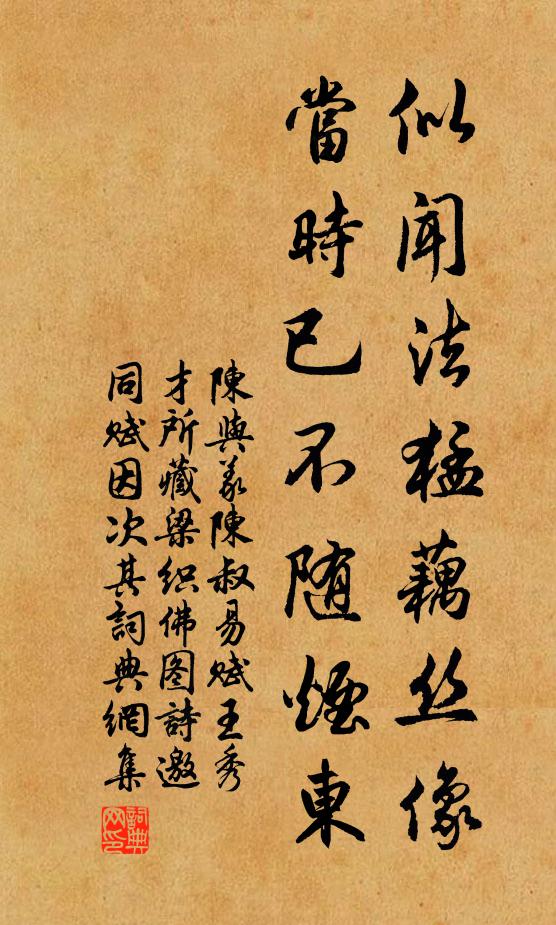 似聞法猛藕丝像
當時已不随煙東
陳與義陳叔易賦王秀
才所藏梁织佛图詩邀
同賦因次其詞典網集
詞典网印